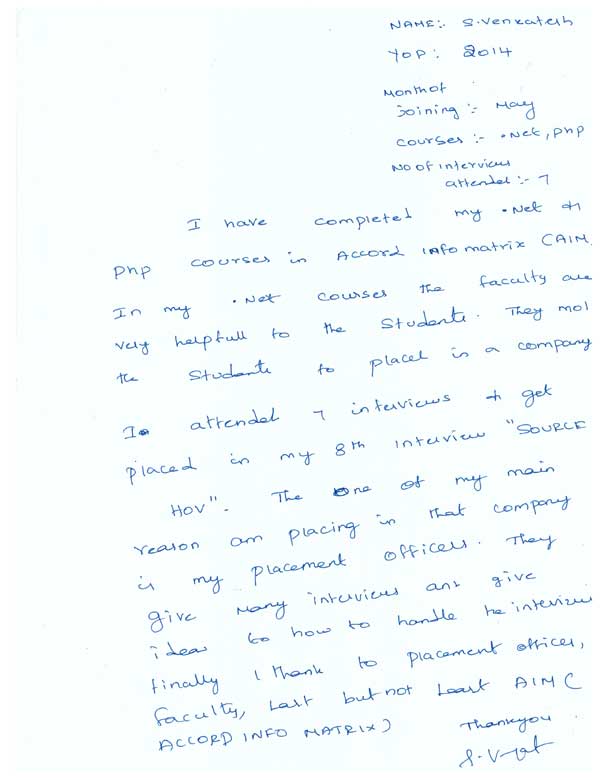 NAME:- S.Venkatesh
YOP: 2014
Month of
joining:- May
courses:- .Net, php
No of interviews
attended:- 7
I have completed my .Net &
php courses in Accord infomatrix (AIM
In my .Net courses the faculty are
very helpfull to the students. They mol
the students to placed in a company
I attended 7 interviews & get
placed in my 8th interview "SOURCE
HOV". The one of my main
reason am placing in that company
is my placement officers. They
give many interviews and give
ideas to how to handle the interview
finally I thank to placement officer,
faculty, Last but not Least AIM (
ACCORD INFO MATRIX)
Thankyou
S.V